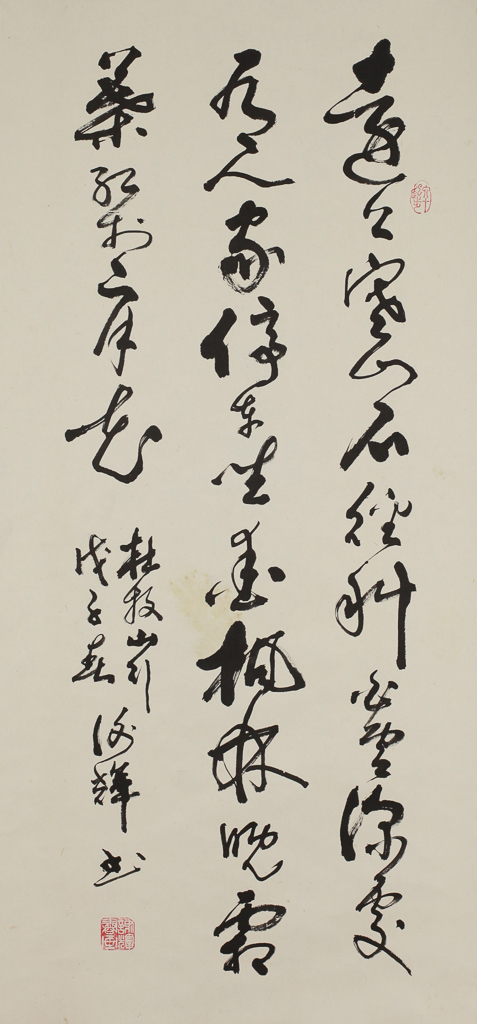 遠上寒山石徑斜白雲深處
有人家停車坐愛楓林晚霜
葉紅於二月花
杜牧山行
戊子春
輝書